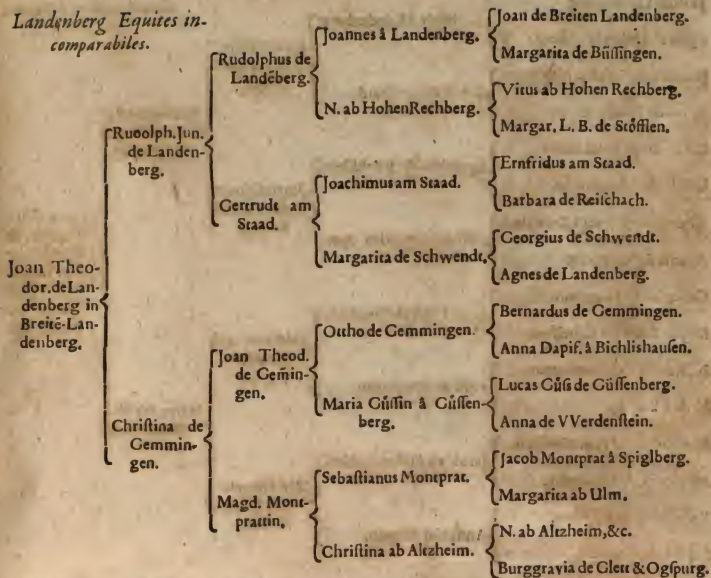 Landenberg Equites in-
comparabiles.
Joan Theo-
dor. de Lan-
denberg in
Breitē-Lan-
denberg.
Rudolph. Jun.
de Landen-
berg.
Christina de
Gemmin-
gen.
Rudolphus de
Landēberg.
Gertrudt am
Staad.
Joan Theod.
de Gem̄in-
gen.
Magd. Mont-
prattin.
Joannes à Landenberg.
N. ab HohenRechberg.
Joachimus am Staad.
Margarita de Schwendt.
Ottho de Gemmingen.
Maria Güſſin à Güſſen-
berg.
Sebaſtianus Montprat.
Chriſtina ab Altzheim.
Joan de Breiten Landenberg.
Margarita de Büſſingen.
Vitus ab Hohen Rechberg.
Margar. L. B. de Stöfflen.
Ernfridus am Staad.
Barbara de Reiſchach.
Georgius de Schwendt.
Agnes de Landenberg.
Bernardus de Gemmingen.
Anna Dapif. à Bichlishauſen.
Lucas Güſs de Güſſenberg.
Anna de VVerdenſtein.
Jacob Montprat à Spiglberg.
Margarita ab Ulm.
N. ab Altzheim, &c.
Burggravia de Glett & Ogſpurg.